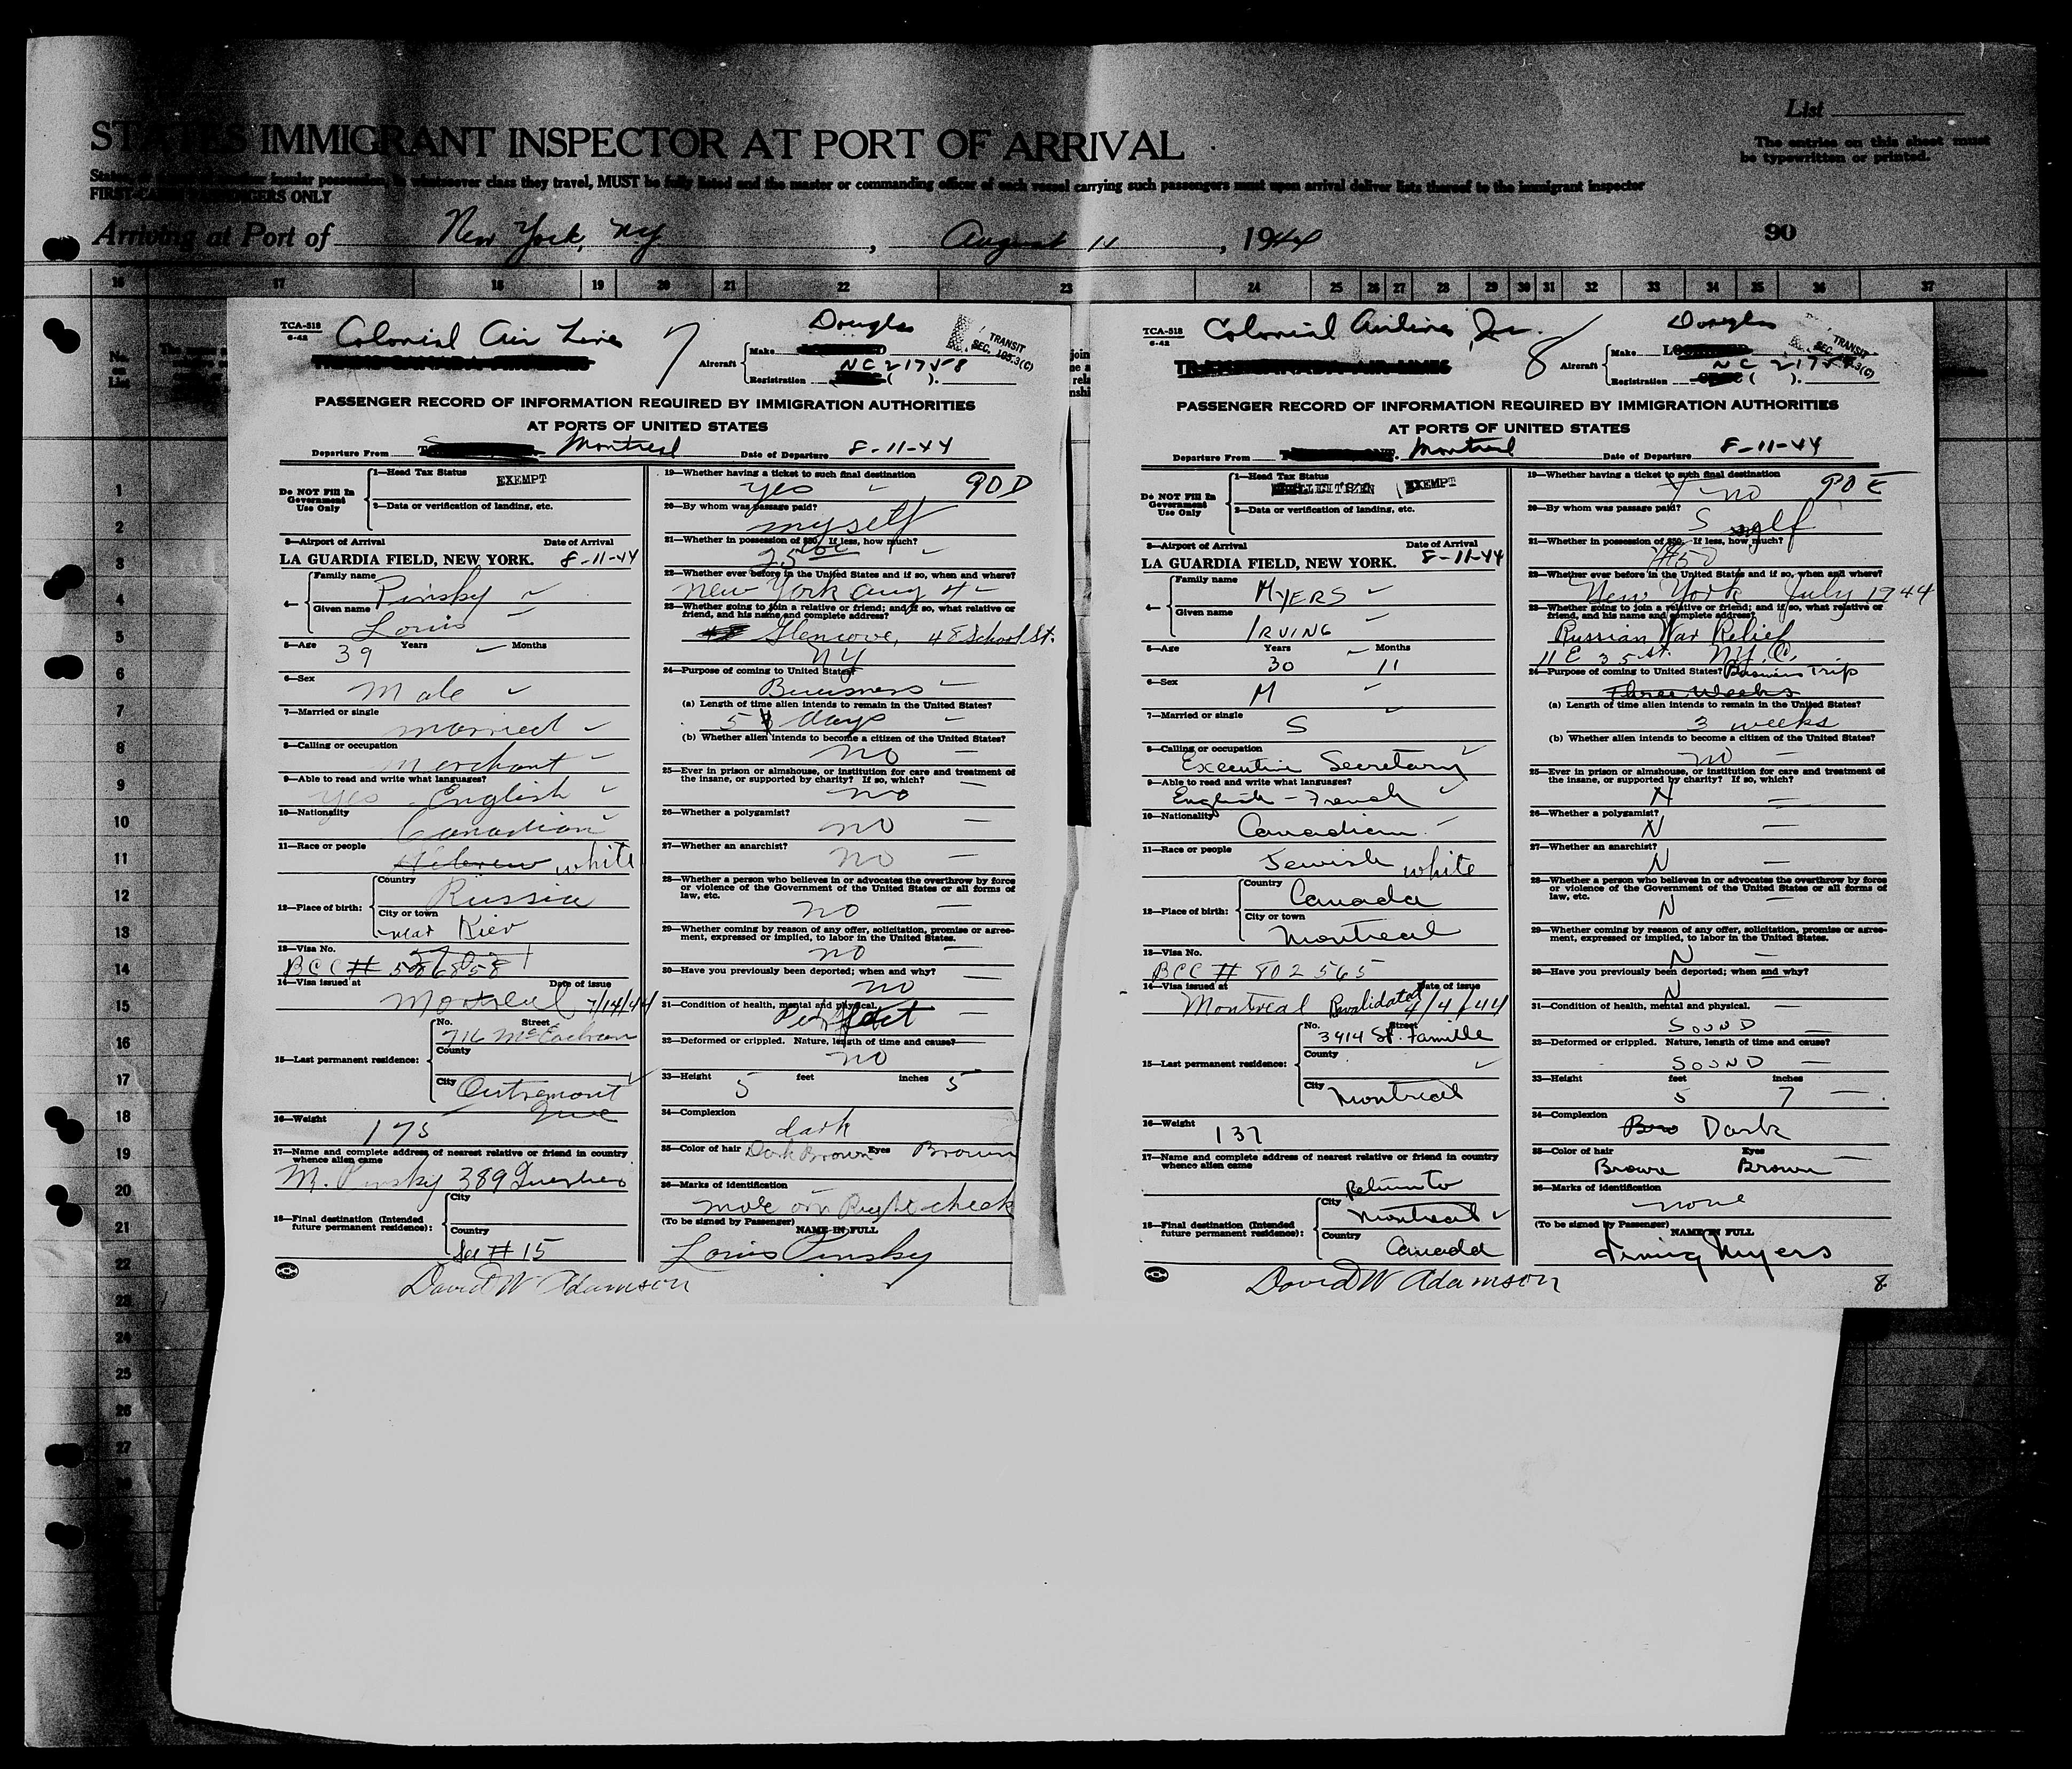 List
STATES IMMIGRANT INSPECTOR AT PORT OF ARRIVAL
The entries on this sheet must
be typewritten or printed.
whatsoever class they travel, MUST be fully listed and the master or commanding officer of each vessel carrying such passengers must upon arrival deliver lists thereof to the immigrant inspector
FIRST-CABIN PASSENGERS ONLY
Arriving at Port of New York, NY, August 11, 1944
90
16 17 18 19 20 21 22 23 24 25 26 27 28 29 30 31 32 33 34 35 36 37
No.
on
List
1
2
3
4
5
6
7
8
9
10
11
12
13
14
15
16
17
18
19
20
21
22
23
24
25
26
27
TCA-518
6-42
Colonial Air Lines
7
Douglas
Aircraft
Make
NC 21758
Registration ( ).
TRANSIT
SEC. 105.3(C)
PASSENGER RECORD OF INFORMATION REQUIRED BY IMMIGRATION AUTHORITIES
AT PORTS OF UNITED STATES
Departure From Montreal Date of Departure 8-11-44
Do NOT Fill In
Government
Use Only
1—Head Tax Status
EXEMPT
2—Data or verification of landing, etc.
3—Airport of Arrival Date of Arrival
LA GUARDIA FIELD, NEW YORK. 8-11-44
4—
Family name
Pinsky
Given name
Louis
5—Age Years Months
39
6—Sex
Male
7—Married or single
married
8—Calling or occupation
Merchant
9—Able to read and write what languages?
yes - English
10—Nationality
Canadian
11—Race or people
Hebrew white
12—Place of birth:
Country
Russia
City or town
near Kiev
13—Visa No.
BCC # 586858
14—Visa issued at Date of issue
Montreal 7/14/44
15—Last permanent residence:
No. Street
716 McEachran
County
City Outremont
Que
16—Weight
175
17—Name and complete address of nearest relative or friend in country
whence alien came
M. Pinsky 389
18—Final destination (Intended
future permanent residence):
City
Country
See # 15
David W Adamson
19—Whether having a ticket to such final destination
yes
90D
20—By whom was passage paid?
myself
21—Whether in possession of $50. If less, how much?
22—Whether ever before in the United States and if so, when and where?
New York Aug 4
23—Whether going to join a relative or friend; and if so, what relative or
friend, and his name and complete address?
Glencove, 48 School St.
NY
24—Purpose of coming to United States?
Business
(a) Length of time alien intends to remain in the United States?
5 days
(b) Whether alien intends to become a citizen of the United States?
no
25—Ever in prison or almshouse, or institution for care and treatment of
the insane, or supported by charity? If so, which?
no
26—Whether a polygamist?
no
27—Whether an anarchist?
no
28—Whether a person who believes in or advocates the overthrow by force
or violence of the Government of the United States or all forms of
law, etc.
no
29—Whether coming by reason of any offer, solicitation, promise or agree-
ment, expressed or implied, to labor in the United States.
no
30—Have you previously been deported; when and why?
no
31—Condition of health, mental and physical.
Perfect
32—Deformed or crippled. Nature, length of time and cause?
no
33—Height 5 feet inches 5
34—Complexion
dark
35—Color of hair Dark Brown Eyes Brown
36—Marks of identification
mole on Right cheek
(To be signed by Passenger)
NAME IN FULL
Louis Pinsky
TCA-518
6-42
Colonial Airlines, Inc.
8
Douglas
Aircraft
Make
NC 21758
Registration ( ).
TRANSIT
SEC. 105.3(C)
PASSENGER RECORD OF INFORMATION REQUIRED BY IMMIGRATION AUTHORITIES
AT PORTS OF UNITED STATES
Departure From Montreal Date of Departure 8-11-44
Do NOT Fill In
Government
Use Only
1—Head Tax Status
EXEMPT
2—Data or verification of landing, etc.
3—Airport of Arrival Date of Arrival
LA GUARDIA FIELD, NEW YORK. 8-11-44
4—
Family name
MYERS
Given name
IRVING
5—Age Years Months
30 11
6—Sex
M
7—Married or single
S
8—Calling or occupation
Executive Secretary
9—Able to read and write what languages?
English - French
10—Nationality
Canadian
11—Race or people
Jewish white
12—Place of birth:
Country
Canada
City or town
Montreal
13—Visa No.
BCC # 802565
14—Visa issued at Date of issue
Montreal Revalidated 4/4/44
15—Last permanent residence:
No. Street
3414 St. Famille
County
City
Montreal
16—Weight
137
17—Name and complete address of nearest relative or friend in country
whence alien came
18—Final destination (Intended
future permanent residence):
Return to
City
Montreal
Country
Canada
David W Adamson
19—Whether having a ticket to such final destination
no
90E
20—By whom was passage paid?
Self
21—Whether in possession of $50. If less, how much?
$50
22—Whether ever before in the United States and if so, when and where?
New York July 1944
23—Whether going to join a relative or friend; and if so, what relative or
friend, and his name and complete address?
Russian War Relief
11 E 35 St. N.Y.C.
24—Purpose of coming to United States? Business Trip
Three Weeks
(a) Length of time alien intends to remain in the United States?
3 weeks
(b) Whether alien intends to become a citizen of the United States?
no
25—Ever in prison or almshouse, or institution for care and treatment of
the insane, or supported by charity? If so, which?
N
26—Whether a polygamist?
N
27—Whether an anarchist?
N
28—Whether a person who believes in or advocates the overthrow by force
or violence of the Government of the United States or all forms of
law, etc.
N
29—Whether coming by reason of any offer, solicitation, promise or agree-
ment, expressed or implied, to labor in the United States.
N
30—Have you previously been deported; when and why?
N
31—Condition of health, mental and physical.
SOUND
32—Deformed or crippled. Nature, length of time and cause?
SOUND
33—Height feet inches
5 7
34—Complexion
Dark
35—Color of hair Eyes
Brown Brown
36—Marks of identification
none
(To be signed by Passenger)
NAME IN FULL
Irving Myers
8